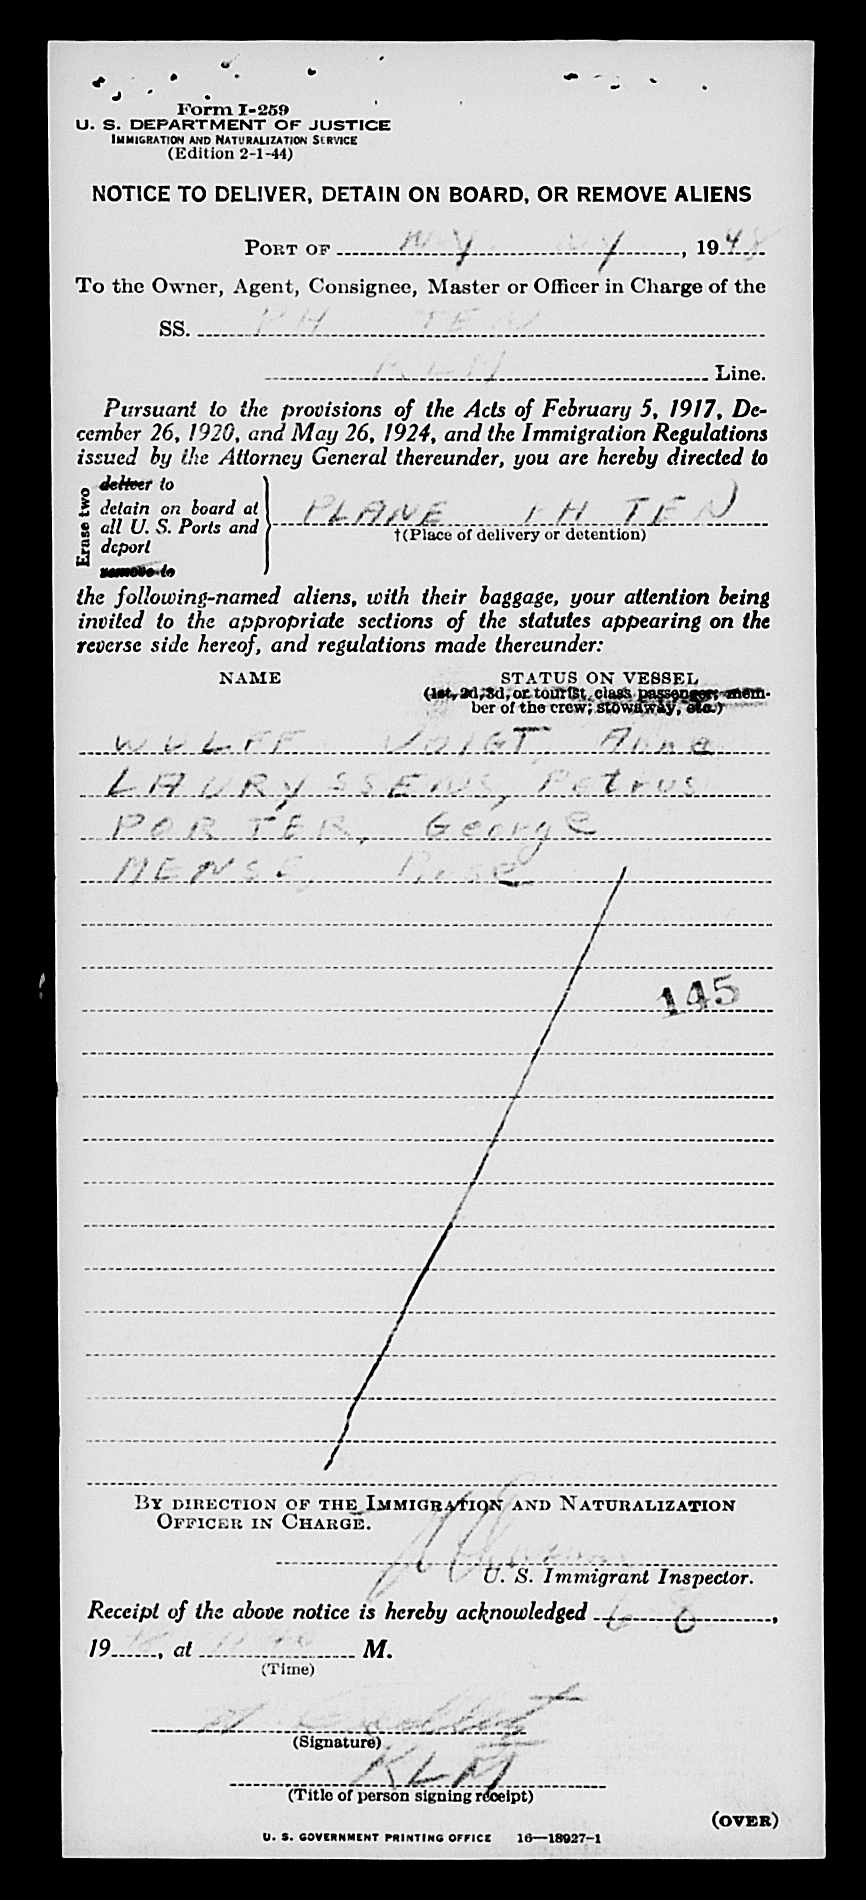 Form I-259
U. S. DEPARTMENT OF JUSTICE
IMMIGRATION AND NATURALIZATION SERVICE
(Edition 2-1-44)
NOTICE TO DELIVER, DETAIN ON BOARD, OR REMOVE ALIENS
PORT OF NY NY, 1948
To the Owner, Agent, Consignee, Master or Officer in Charge of the
SS. PH TEN
KLM Line.
Pursuant to the provisions of the Acts of February 5, 1917, De-
cember 26, 1920, and May 26, 1924, and the Immigration Regulations
issued by the Attorney General thereunder, you are hereby directed to
Erase two
deliver to
detain on board at
all U. S. Ports and
deport
remove to
PLANE PH TEN
†(Place of delivery or detention)
the following-named aliens, with their baggage, your attention being
invited to the appropriate sections of the statutes appearing on the
reverse side hereof, and regulations made thereunder:
NAME STATUS ON VESSEL
(1st, 2d, 3d, or tourist class passenger; mem-
ber of the crew; stowaway, etc.)
WULFF VOIGT, Anna
LAURYSSENS, Petrus
PORTER, George
MENSE, Rose
145
BY DIRECTION OF THE IMMIGRATION AND NATURALIZATION
OFFICER IN CHARGE.
U. S. Immigrant Inspector.
Receipt of the above notice is hereby acknowledged 6 8,
19, at M.
(Time)
(Signature)
KLM
(Title of person signing receipt)
(OVER)
U. S. GOVERNMENT PRINTING OFFICE 16—18927-1